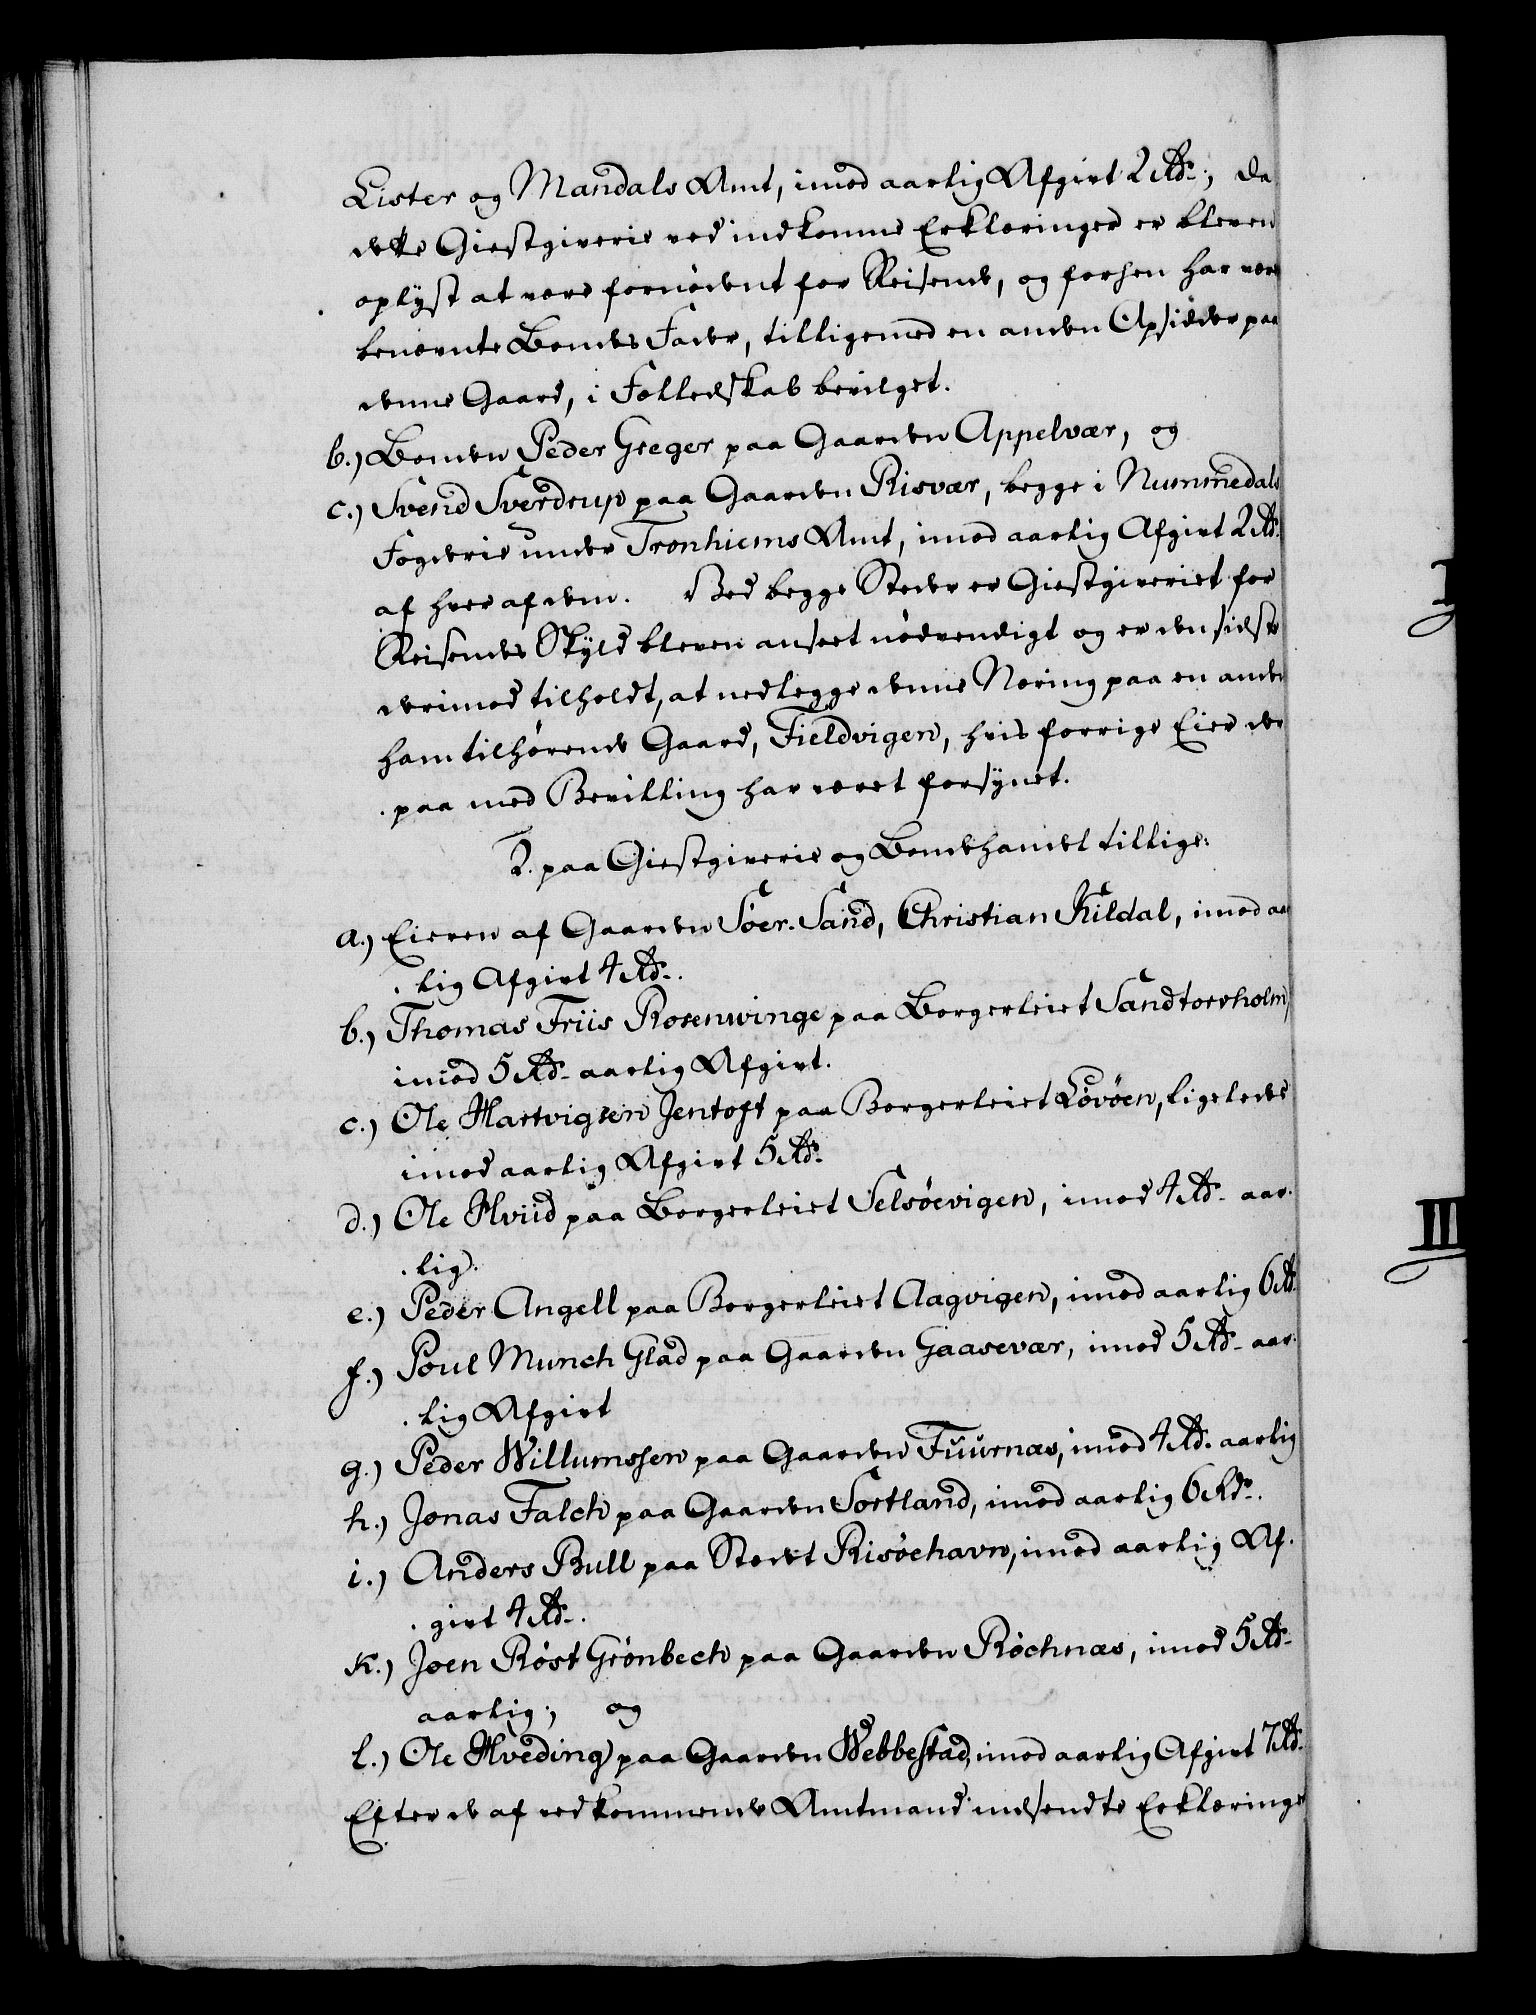 Lister og Mandals Amt, imod aarlig Afgivt 2 Rdr.; da
dette Giestgiverie ved indkomne Erklæringer er bleven
oplyst at være fornødent for Reisende, og forhen har været
benævnte Bondes Fader, tilligemed en anden Opsidder paa
denne Gaard, i Fælledskab bevilget.
b.) Bonden Peder Greger paa Gaarden Appelvær, og
c.) Svend Sverdrup paa Gaarden Risvær, begge i Nummedals
Fogderie under Tronhiems Amt, imod aarlig Afgivt 2 Rdr.
af hver af dem. Ved begge Steder er Giestgiveriet for
Reisendes Skyld bleven anseet nødvendigt og er den sidste
derimod tilholdt, at nedlegge denne Næring paa en anden
ham tilhørende Gaard, Fieldvigen, hvis forrige Eier der
paa med Bevilling har været forsynet.
2. paa Giestgiverie og Bondehandel tillige:
a.) Eieren af Gaarden Søer-Sand, Christian Kildal, imod aar
lig Afgivt 4 Rdr.
b.) Thomas Friis Rosenvinge paa Borgerleiet Sandtorvholm,
imod 5 Rdr. aarlig Afgivt.
c.) Ole Hartvigsen Jentoft paa Borgerleiet Løvøen, ligeledes
imod aarlig Afgivt 5 Rdr.
d.) Ole Hviid paa Borgerleiet Selsøevigen, imod 4 Rdr. aar-
lig.
e.) Peder Angell paa Borgerleiet Aagvigen, imod aarlig 6 Rdr.
f.) Poul Munch Glad paa Gaarden Gaasevær, imod 5 Rdr. aar-
lig Afgivt
g.) Peder Willumssen paa Gaarden Fuurnæs, imod 4 Rdr. aarlig
h.) Jonas Falch paa Gaarden Sortland, imod aarlig 6 Rdr.
i.) Anders Bull paa Stedet Risøehavn, imod aarlig Af-
givt 4 Rdr.
k.) Joen Røst Grønbech paa Gaarden Røchnæs, imod 5 Rdr.
aarlig; og
l.) Ole Hveding paa Gaarden Webbestad, imod aarlig Afgivt 7 Rdr.
Efter de af vedkommende Amtmand indsendte Erklæringer
II